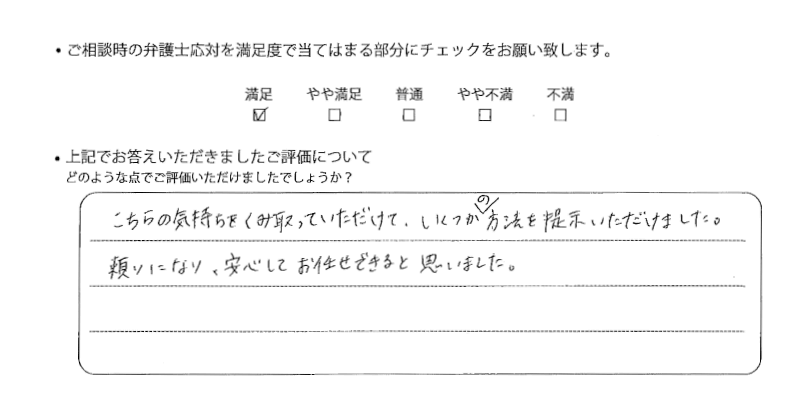 ・ご相談時の弁護士応対を満足度で当てはまる部分にチェックをお願い致します。
満足 やや満足 普通 やや不満 不満
☑ □ □ □ □
・上記でお答えいただきましたご評価について
どのような点でご評価いただけましたでしょうか？
こちらの気持ちをくみ取っていただけて、いくつかの方法を提示いただけました。
頼りになり、安心してお任せできると思いました。